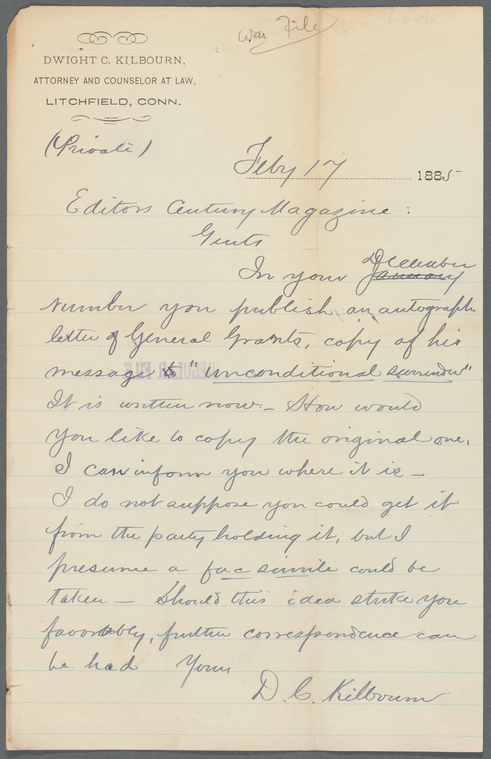 War File
DWIGHT C. KILBOURN,
ATTORNEY AND COUNSELOR AT LAW,
LITCHFIELD, CONN.
(Private)
Feby 17 1885
Editors Century Magazine:
Gents
In your December
January
Number you publish an autograph
letter of General Grants, copy of his
message is "unconditional surrender"
It is written now – How would
you like to copy the original one.
I can inform you where it is –
I do not suppose you could get it
from the party holding it, but I
presume a fac simile could be
taken – Should this idea strike you
favorably, further correspondence can
be had Yours
D. C. Kilbourn